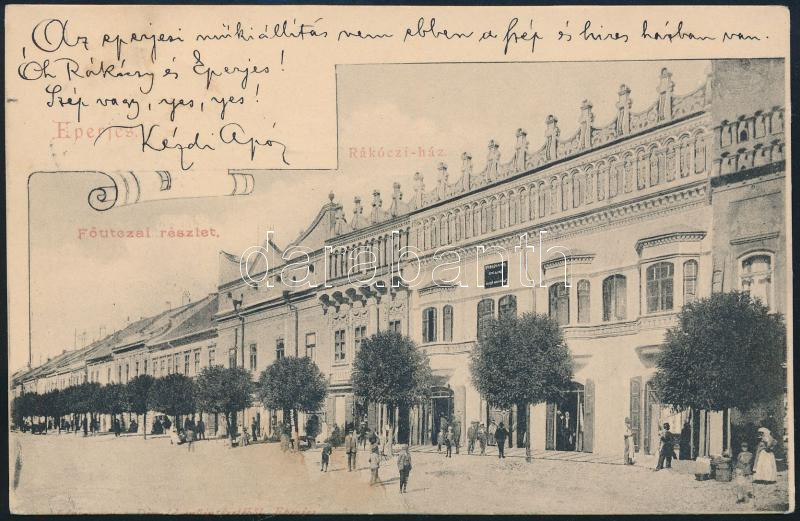 „Az eperjesi műkiállítás nem ebben a szép és hires házban van.
Oh Rákóczy és Eperjes!
Szép vagy, yes, yes!
Eperjes.
Kézdi Apó
Rákóczi-ház
Főutczai részlet.
darabanth